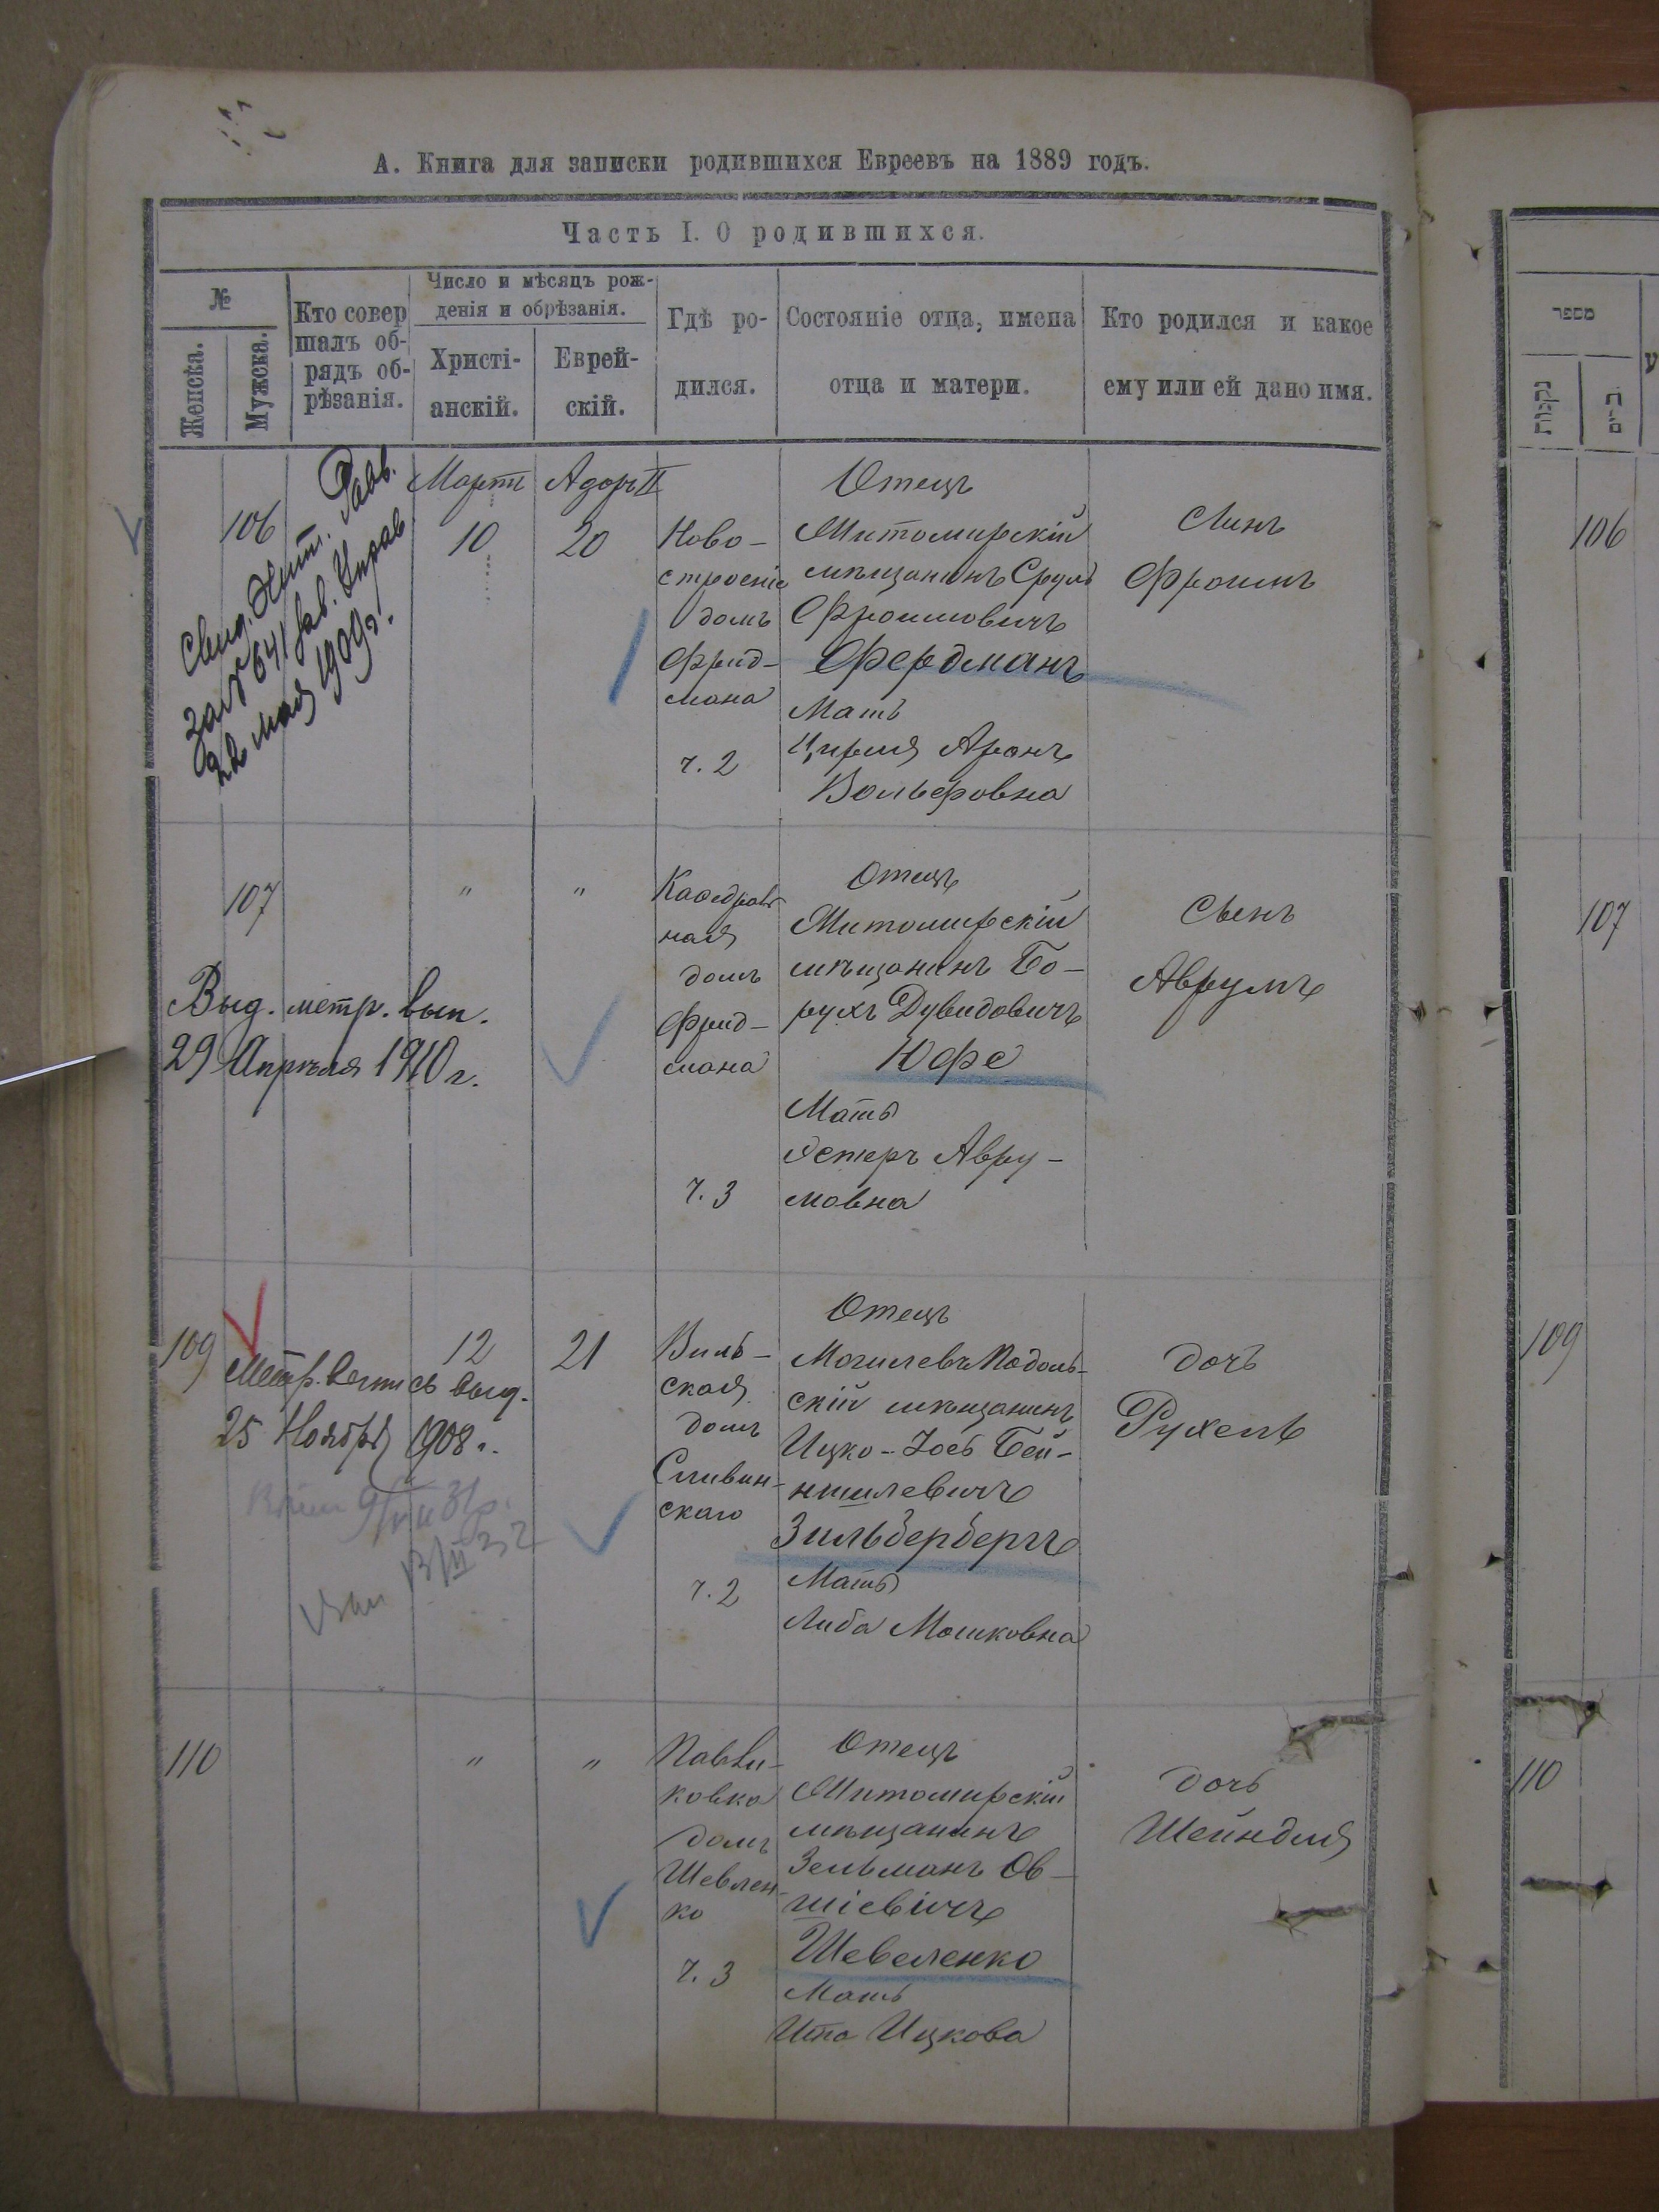 А. Книга для записки родившихся Евреевъ на 1889 годъ.
Часть I. О родившихся.
№
Женска.
Мужска.
Кто совер
шалъ об-
рядъ об-
рѣзанія.
Число и мѣсяцъ рож-
денія и обрѣзанія.
Христі-
анскій.
Еврей-
скій.
Гдѣ ро-
дился.
Состояніе отца, имена
отца и матери.
Кто родился и какое
ему или ей дано имя.
מספר
נקבות
106
Мартъ
10
Адоръ II
20
Ново-
строеніе
домъ
Фрид-
мана
ч. 2
Отецъ
Житомирскій
мѣщанинъ Сруль
Фроимовичъ
Фердманъ
Мать
Цирля Аронъ
Вольфовна
Сынъ
Фроимъ
22 мая 1909 г.
106
107
"
"
Кафедраль
ная
домъ
Фрид-
мана
ч. 3
Отецъ
Житомирскій
мѣщанинъ Бо-
рухъ Дувидовичъ
Юфе
Мать
Эстеръ Авру-
мовна
Сынъ
Аврумъ
Выд. метр. вып.
29 Апрѣля 1910 г.
107
109
12
21
Виль-
ская
домъ
Сливин-
скаго
ч. 2
Отецъ
МогилевъПодоль-
скій мѣщанинъ
Ицко-Іось Бей-
нишлевичъ
Зильбербергъ
Мать
Либа Мошковна
дочь
Рухель
Метр. выпись выд.
25 Ноября 1908 г.
109
110
"
"
Павли-
ковка
домъ
Шевлен-
ко
ч. 3
Отецъ
Житомирскій
мѣщанинъ
Зельманъ Ов-
шіевичъ
Шевеленко
Мать
Ита Ицкова
дочь
Шейндля
110